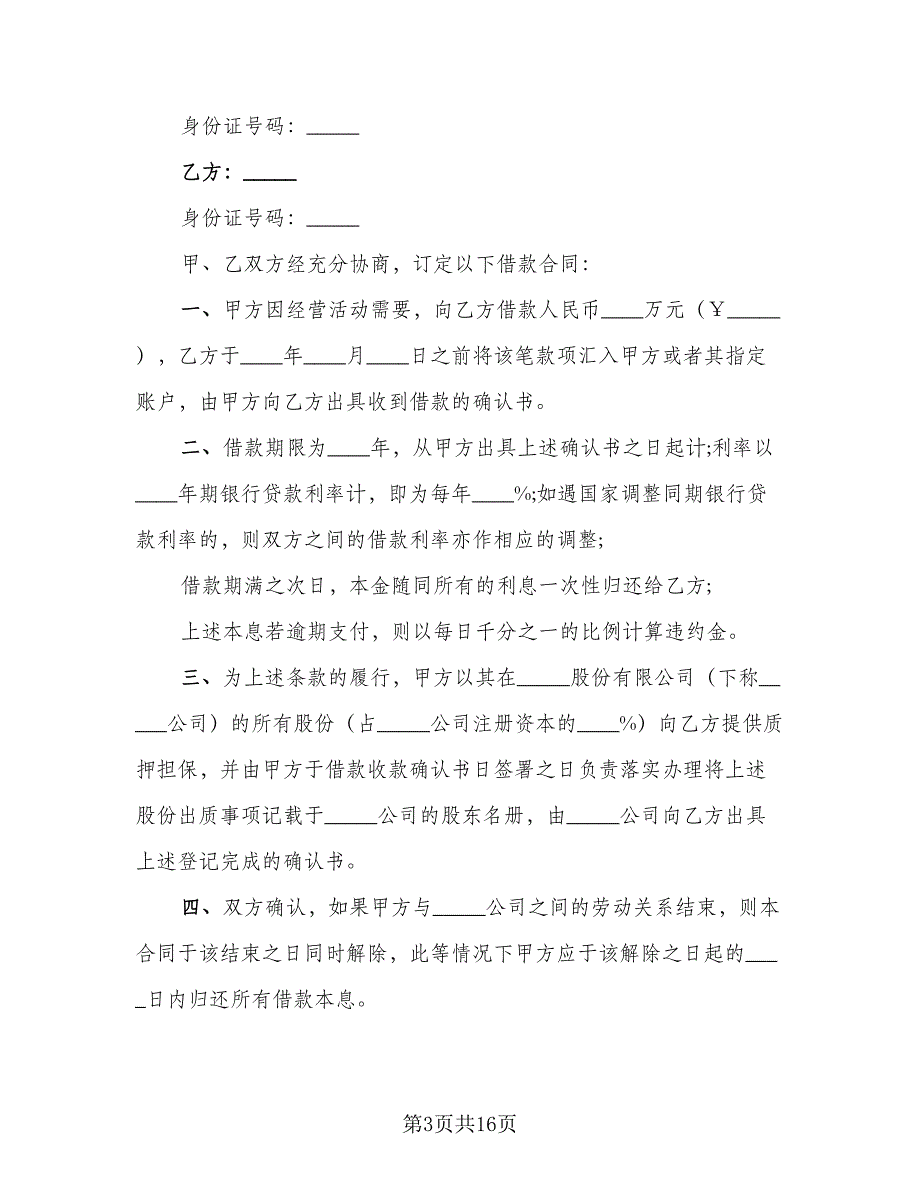 身份证号码：_____
乙方：_____
身份证号码：_____
甲、乙双方经充分协商，订定以下借款合同：
一、甲方因经营活动需要，向乙方借款人民币____万元（￥_____
），乙方于____年____月____日之前将该笔款项汇入甲方或者其指定
账户，由甲方向乙方出具收到借款的确认书。
二、借款期限为____年，从甲方出具上述确认书之日起计;利率以
____年期银行贷款利率计，即为每年____%;如遇国家调整同期银行贷
款利率的，则双方之间的借款利率亦作相应的调整;
借款期满之次日，本金随同所有的利息一次性归还给乙方;
上述本息若逾期支付，则以每日千分之一的比例计算违约金。
三、为上述条款的履行，甲方以其在_____股份有限公司（下称__
___公司）的所有股份（占_____公司注册资本的____%）向乙方提供质
押担保，并由甲方于借款收款确认书日签署之日负责落实办理将上述
股份出质事项记载于_____公司的股东名册，由_____公司向乙方出具
上述登记完成的确认书。
四、双方确认，如果甲方与_____公司之间的劳动关系结束，则本
合同于该结束之日同时解除，此等情况下甲方应于该解除之日起的___
_日内归还所有借款本息。
第3页共16页